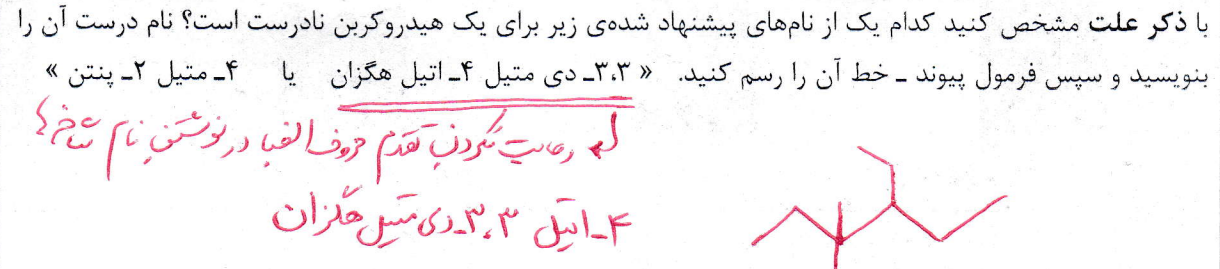 با ذکر علت مشخص کنید کدام یک از نام‌های پیشنهاد شده‌ی زیر برای یک هیدروکربن نادرست است؟ نام درست آن را
بنویسید و سپس فرمول پیوند ـ خط آن را رسم کنید. « ۳،۳ـ دی متیل ۴ـ اتیل هگزان یا ۴ـ متیل ۲ـ پنتن »
رعایت نکردن تقدم حروف الفبا در نوشتن نام شاخه‌ها
۴ـ اتیل ۳،۳ـ دی متیل هگزان